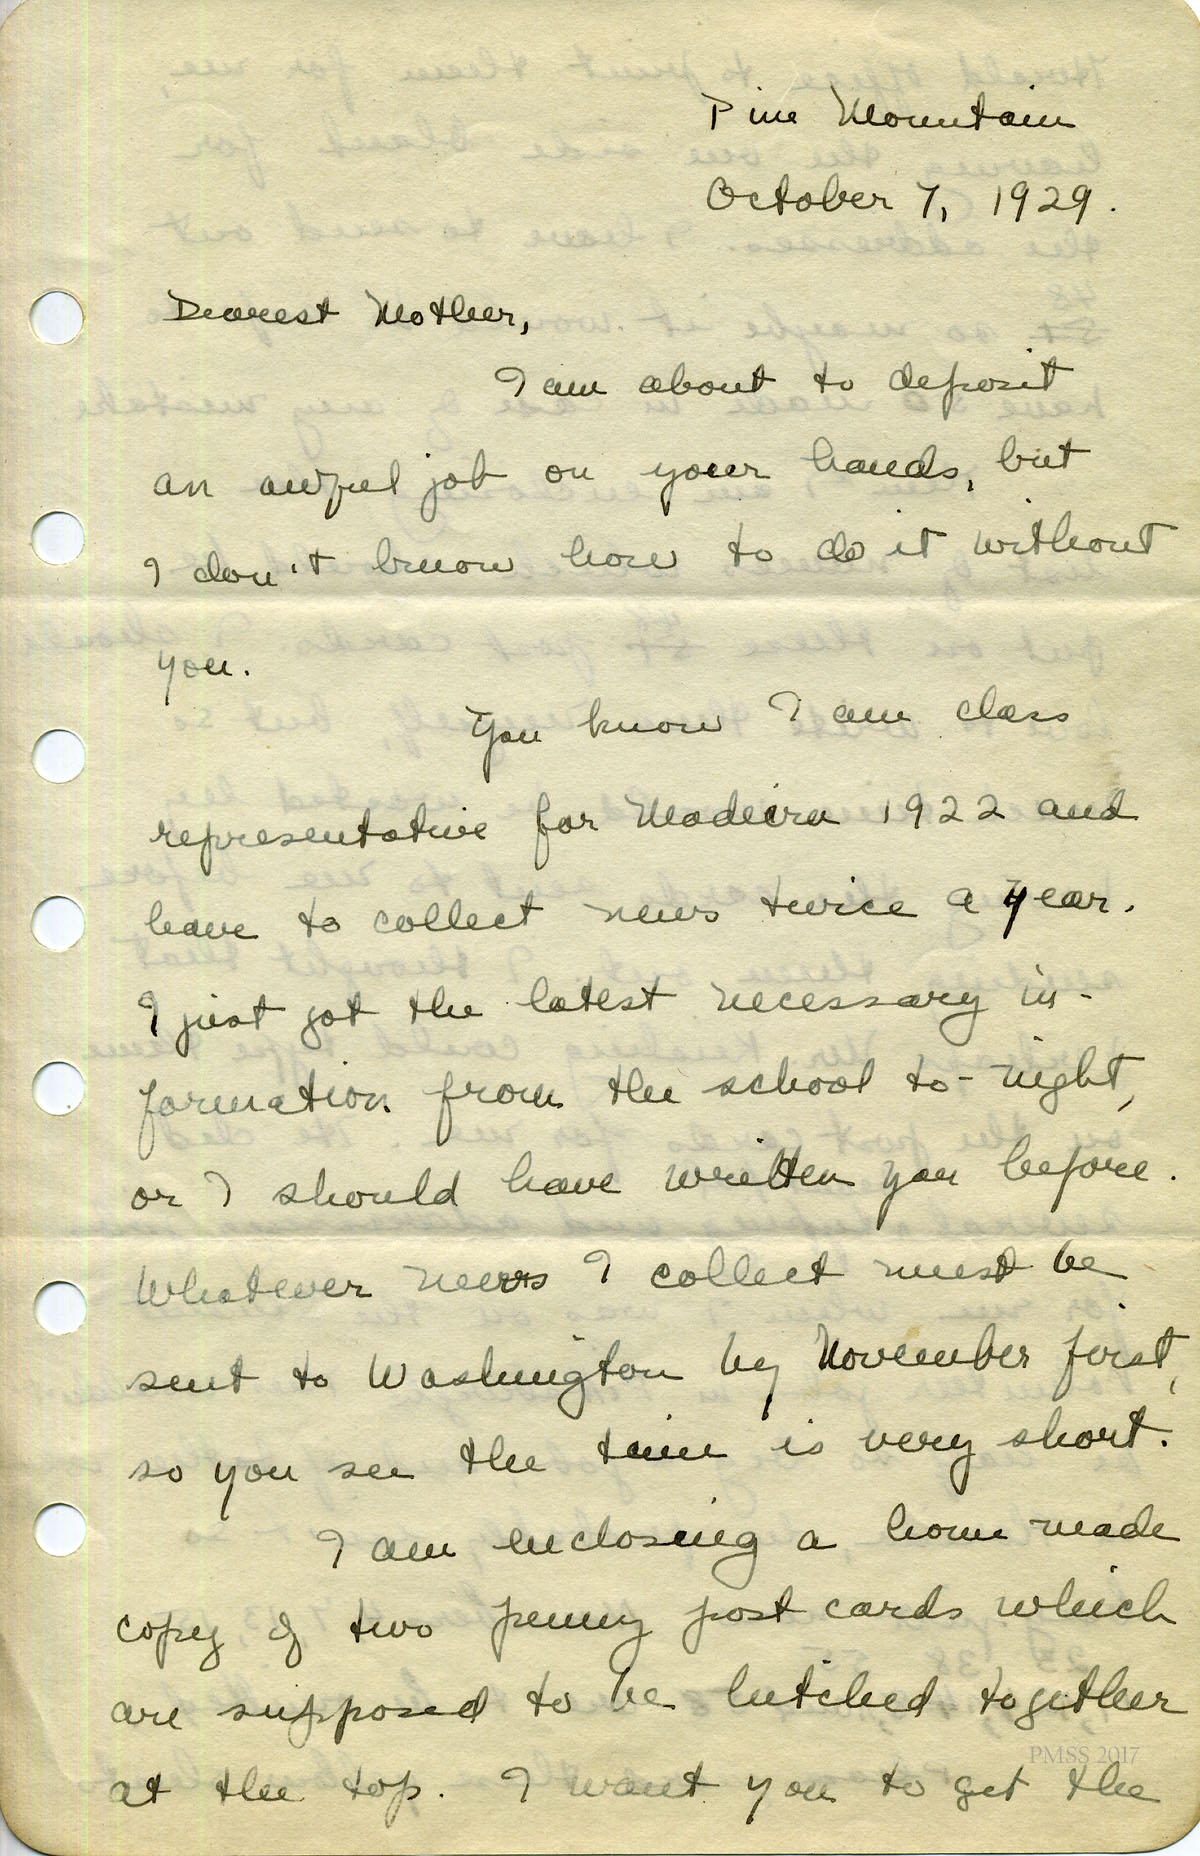 Pine Mountain
October 7, 1929.
Dearest Mother,
I am about to deposit
an awful job on your hands, but
I don't know how to do it without
you.
You know I am class
representative for Madeira 1922 and
have to collect news twice a year.
I just got the latest necessary in-
formation from the school to-night,
or I should have written you before.
Whatever news I collect must be
sent to Washington by November first,
so you see the time is very short.
I am enclosing a home made
copy of two penny post cards which
are supposed to be hitched together
at the top. I want you to get the
PMSS 2017